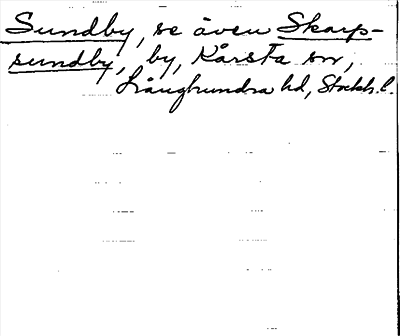 Sundby, se även Skarp-
sundby, by, Kårsta sn,
Långhundra hd, Stockh. l.